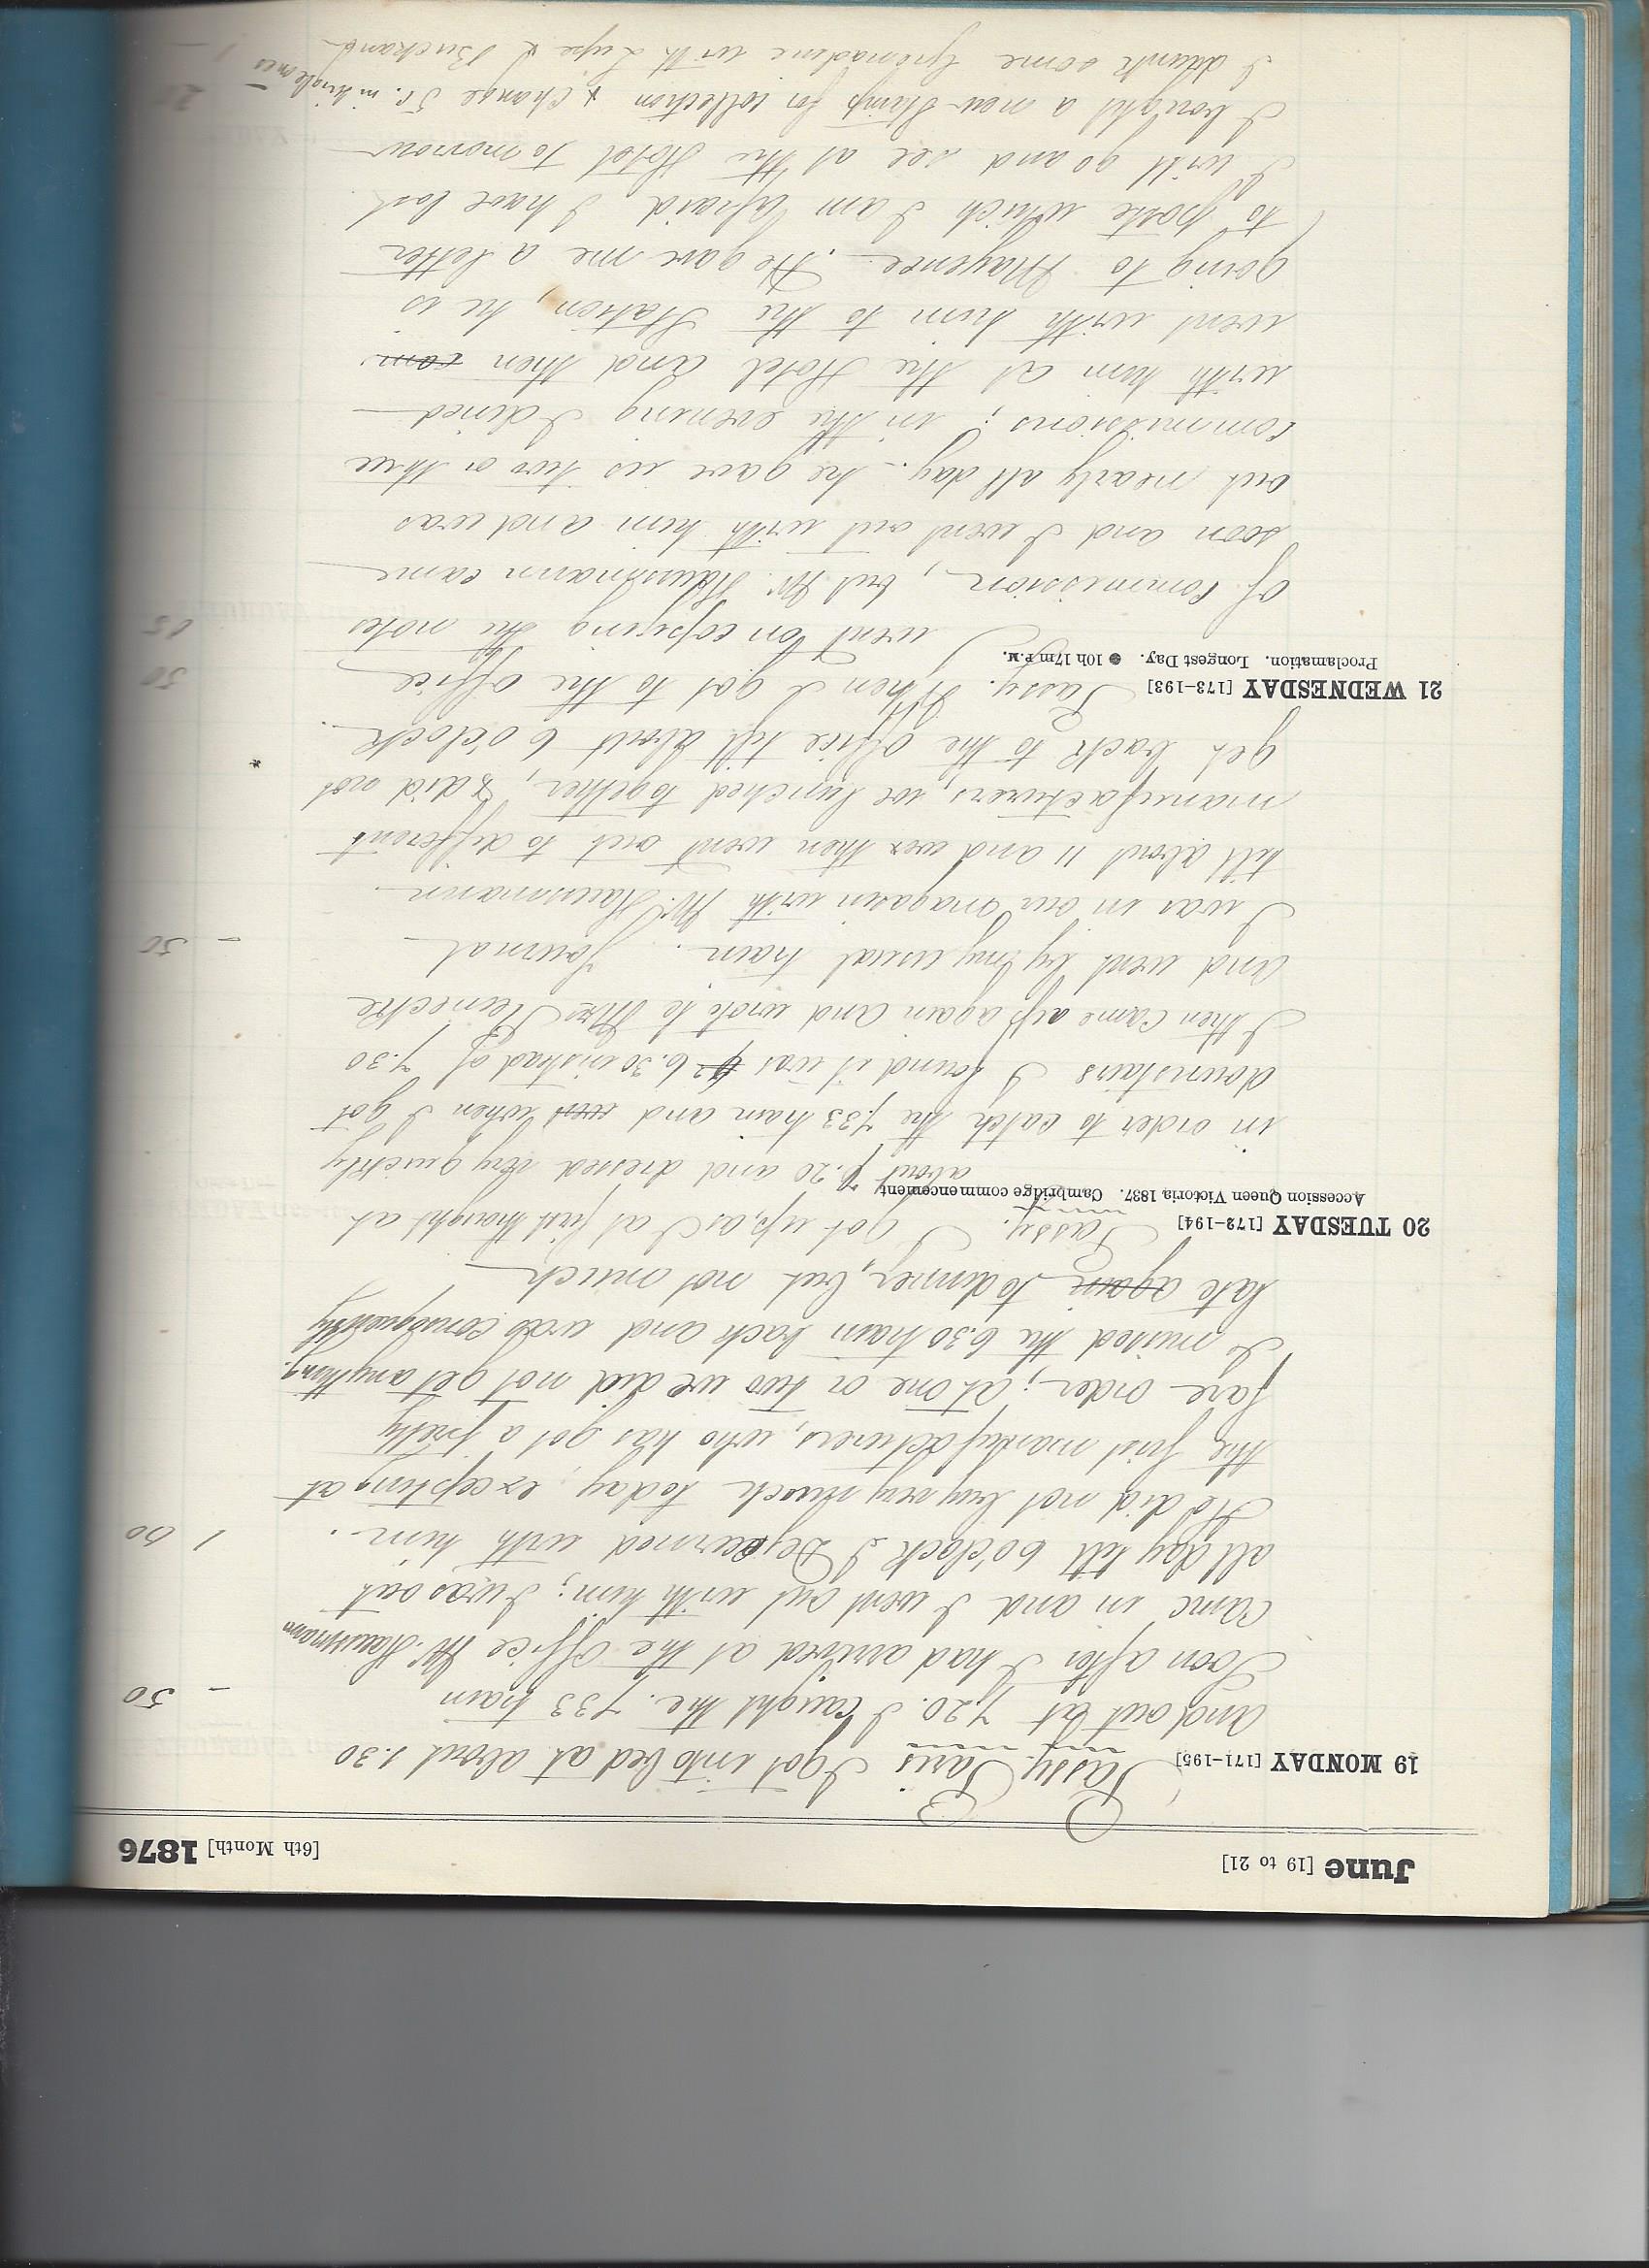 June [19 to 21] [6th Month] 1876
19 MONDAY [171-195] Passy. Paris I got into bed at about 1.30
and out at 7.20. I caught the 7.33 train - 50
Soon after I had arrived at the Office Mr. Haussmann
came in and I went out with him; I was out
all day till 6 o'clock I Dejeuned with him. 1 60
He did not buy very much today, excepting at
the first manufacturers, who has got a pretty
fare order; at one or two we did not get anything.
I missed the 6.30 train back and was consequently
late again to dinner, but not much
20 TUESDAY [172-194] Passy. I got up, as I at first thought at
Accession Queen Victoria 1837. Cambridge commencement
about 7.20 and dressed very quickly
in order to catch the 7.33 train and when I got
downstairs I found it was 6.30 instead of 7.30
I then came up again and wrote to Reinecke
and went by my usual train. Journal - 50
I was in our magasin with Mr. Haussmann
till about 11 and we then went out to different
manufacturers, we lunched together, & did not
get back to the office till about 6 o'clock. *
21 WEDNESDAY [173-193] Passy. When I got to the office 50
Proclamation. Longest Day. ● 10h 17m P.M.
I went on copying the notes 15
of Commission, but Mr. Haussmann came
soon and I went out with him and was
out nearly all day. he gave us two or three
commissions; in the evening I dined
with him at the Hotel and then cam
went with him to the Station, he is
going to Mayence. He gave me a letter
to poste which I am afraid, I have lost
I will go and see at the Hotel tomorrow
I bought a new stamp for collection & change 5c. in single ones
I drunk some Grenadine with & 1